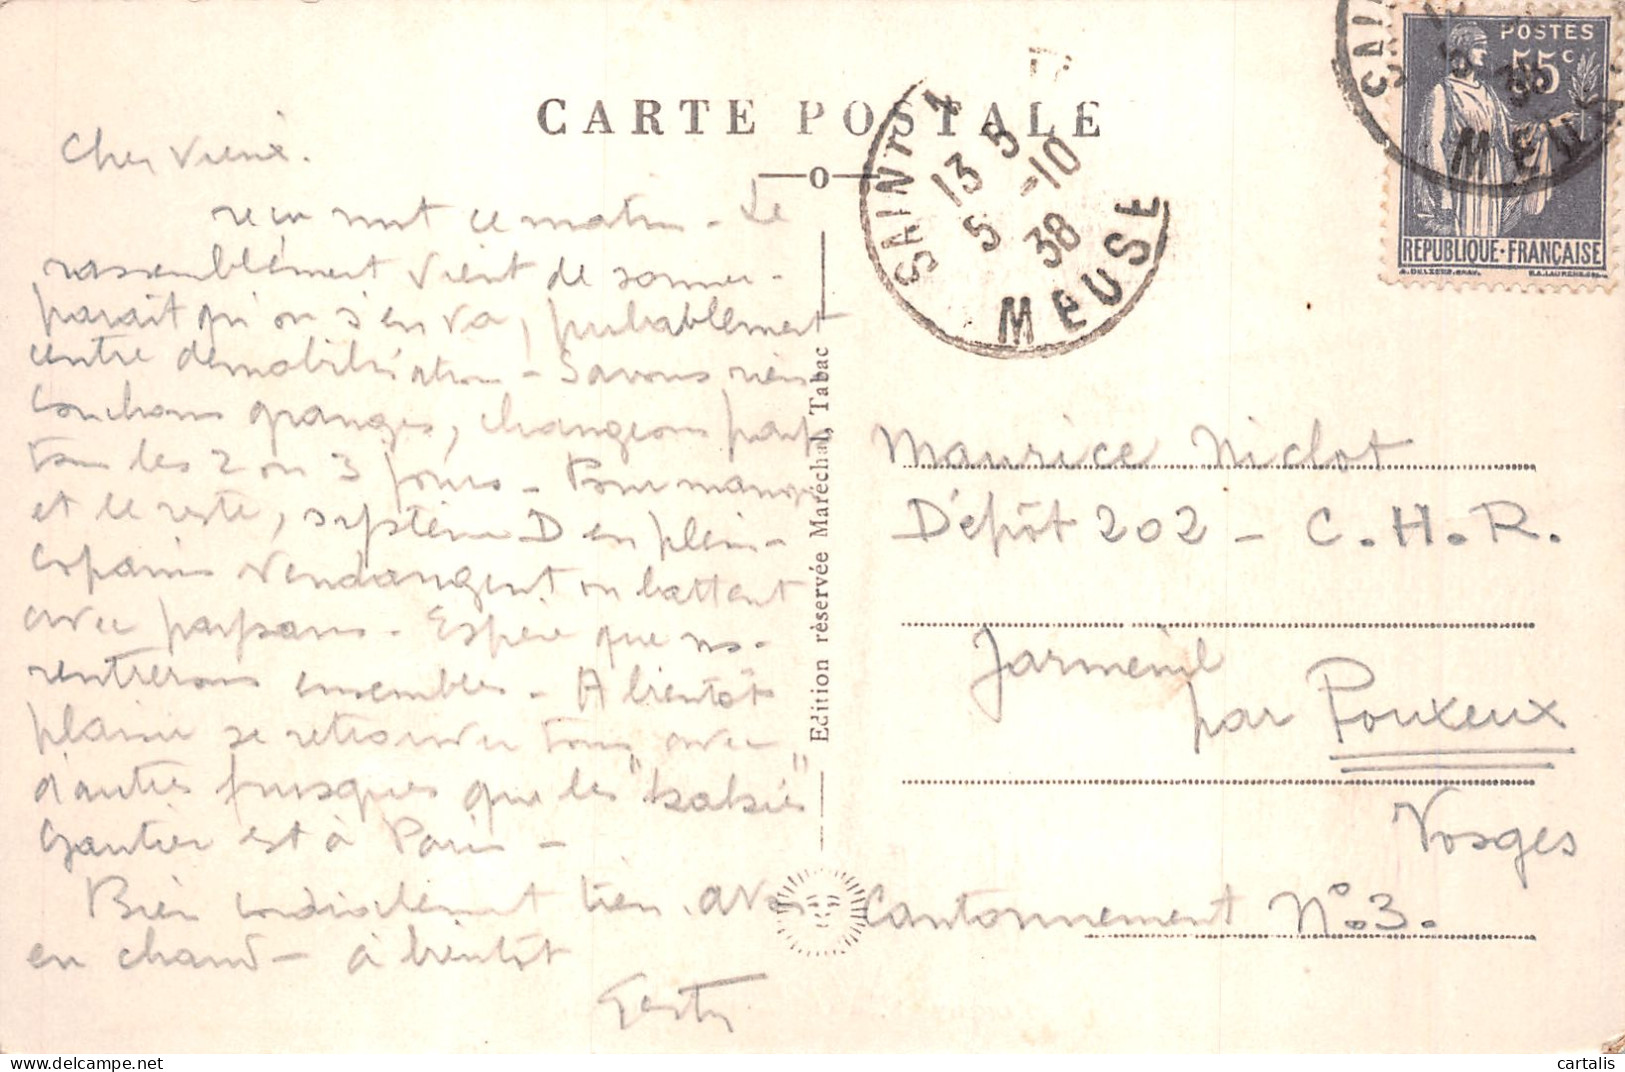 CARTE POSTALE
Cher Vieux.
reçu mot ce matin - Le
rassemblement vient de sonner -
parait qu'on s'en va, probablement
centre démobilisation - Savons rien
couchons granges, changeons
tous les 2 ou 3 jours - Pour manger
et le reste, système D en plein -
copains vendangent ou battent
avec paysans - Espère que ns -
rentrerons ensembles - A bientôt
plaisir se retrouver tous avec
d'autres frusques que les "kakis"
Gautier est à Paris -
Bien cordialement tien. avons
en chaud - à bientôt
Edition réservée Maréchal, Tabac
SAINT
13 5
5 -10
38
MEUSE
POSTES
55c
RÉPUBLIQUE·FRANÇAISE
SAIN
38
MEUSE
Maurice Niclot
Dépôt 202 - C.H.R.
Jarmenil
par Pouxeux
Vosges
Cantonnement N°.3.
cartalis
delcampe.net